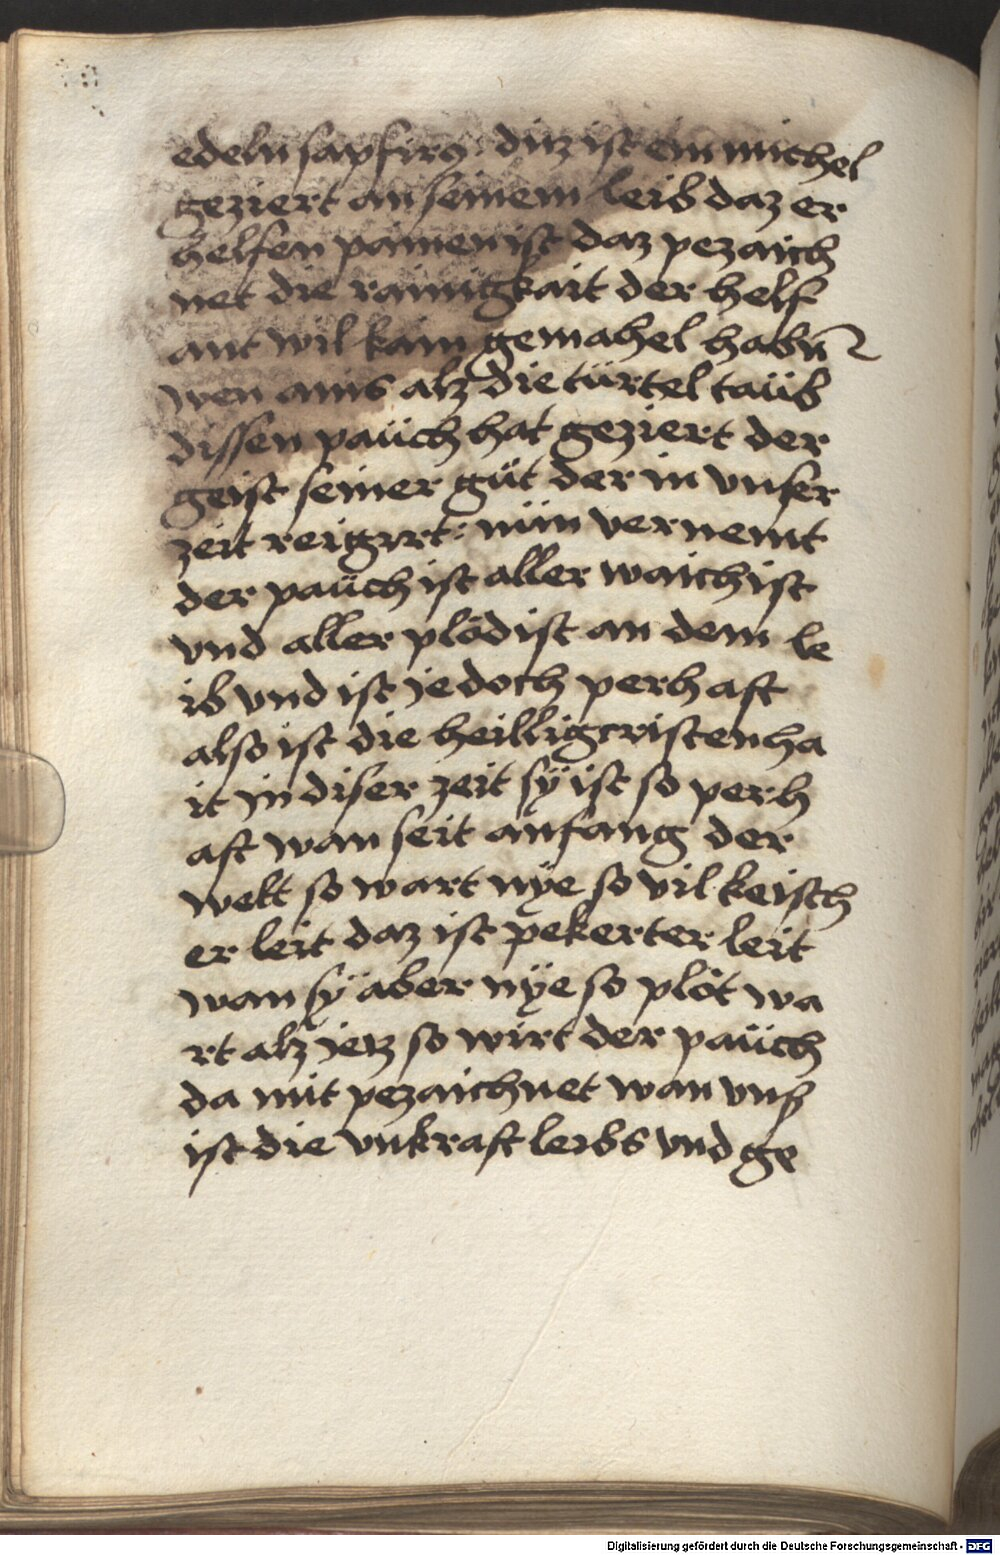 edeln sapfirꝫ. diz ist ein michel
geziert an seinem leib daz er
helfen painen ist daz pezaich
net die rainigkait der helf
ant wil kain gemahel habn
wen ains alz die türtel taüb
dissen paüch hat geziert der
geist seiner güt der in vnser
zeit reigirt: nün vernemt
der paüch ist aller waichist
vnd aller plödist an dem le
ib vnd ist jedoch perhaft
also ist die heilligcristenha
it in diser zeit sÿ ist so perh
aft wan seit anfang der
welt so wart nÿe so vil keisch
er leit daz ist pekerter leit
wan sÿ aber nÿe so plöt wa
rt alz jetz so wirt der paüch
da mit pezaichnet wan vns
ist die vnkraft leibs vnd ge
Digitalisierung gefördert durch die Deutsche Forschungsgemeinschaft - DFG